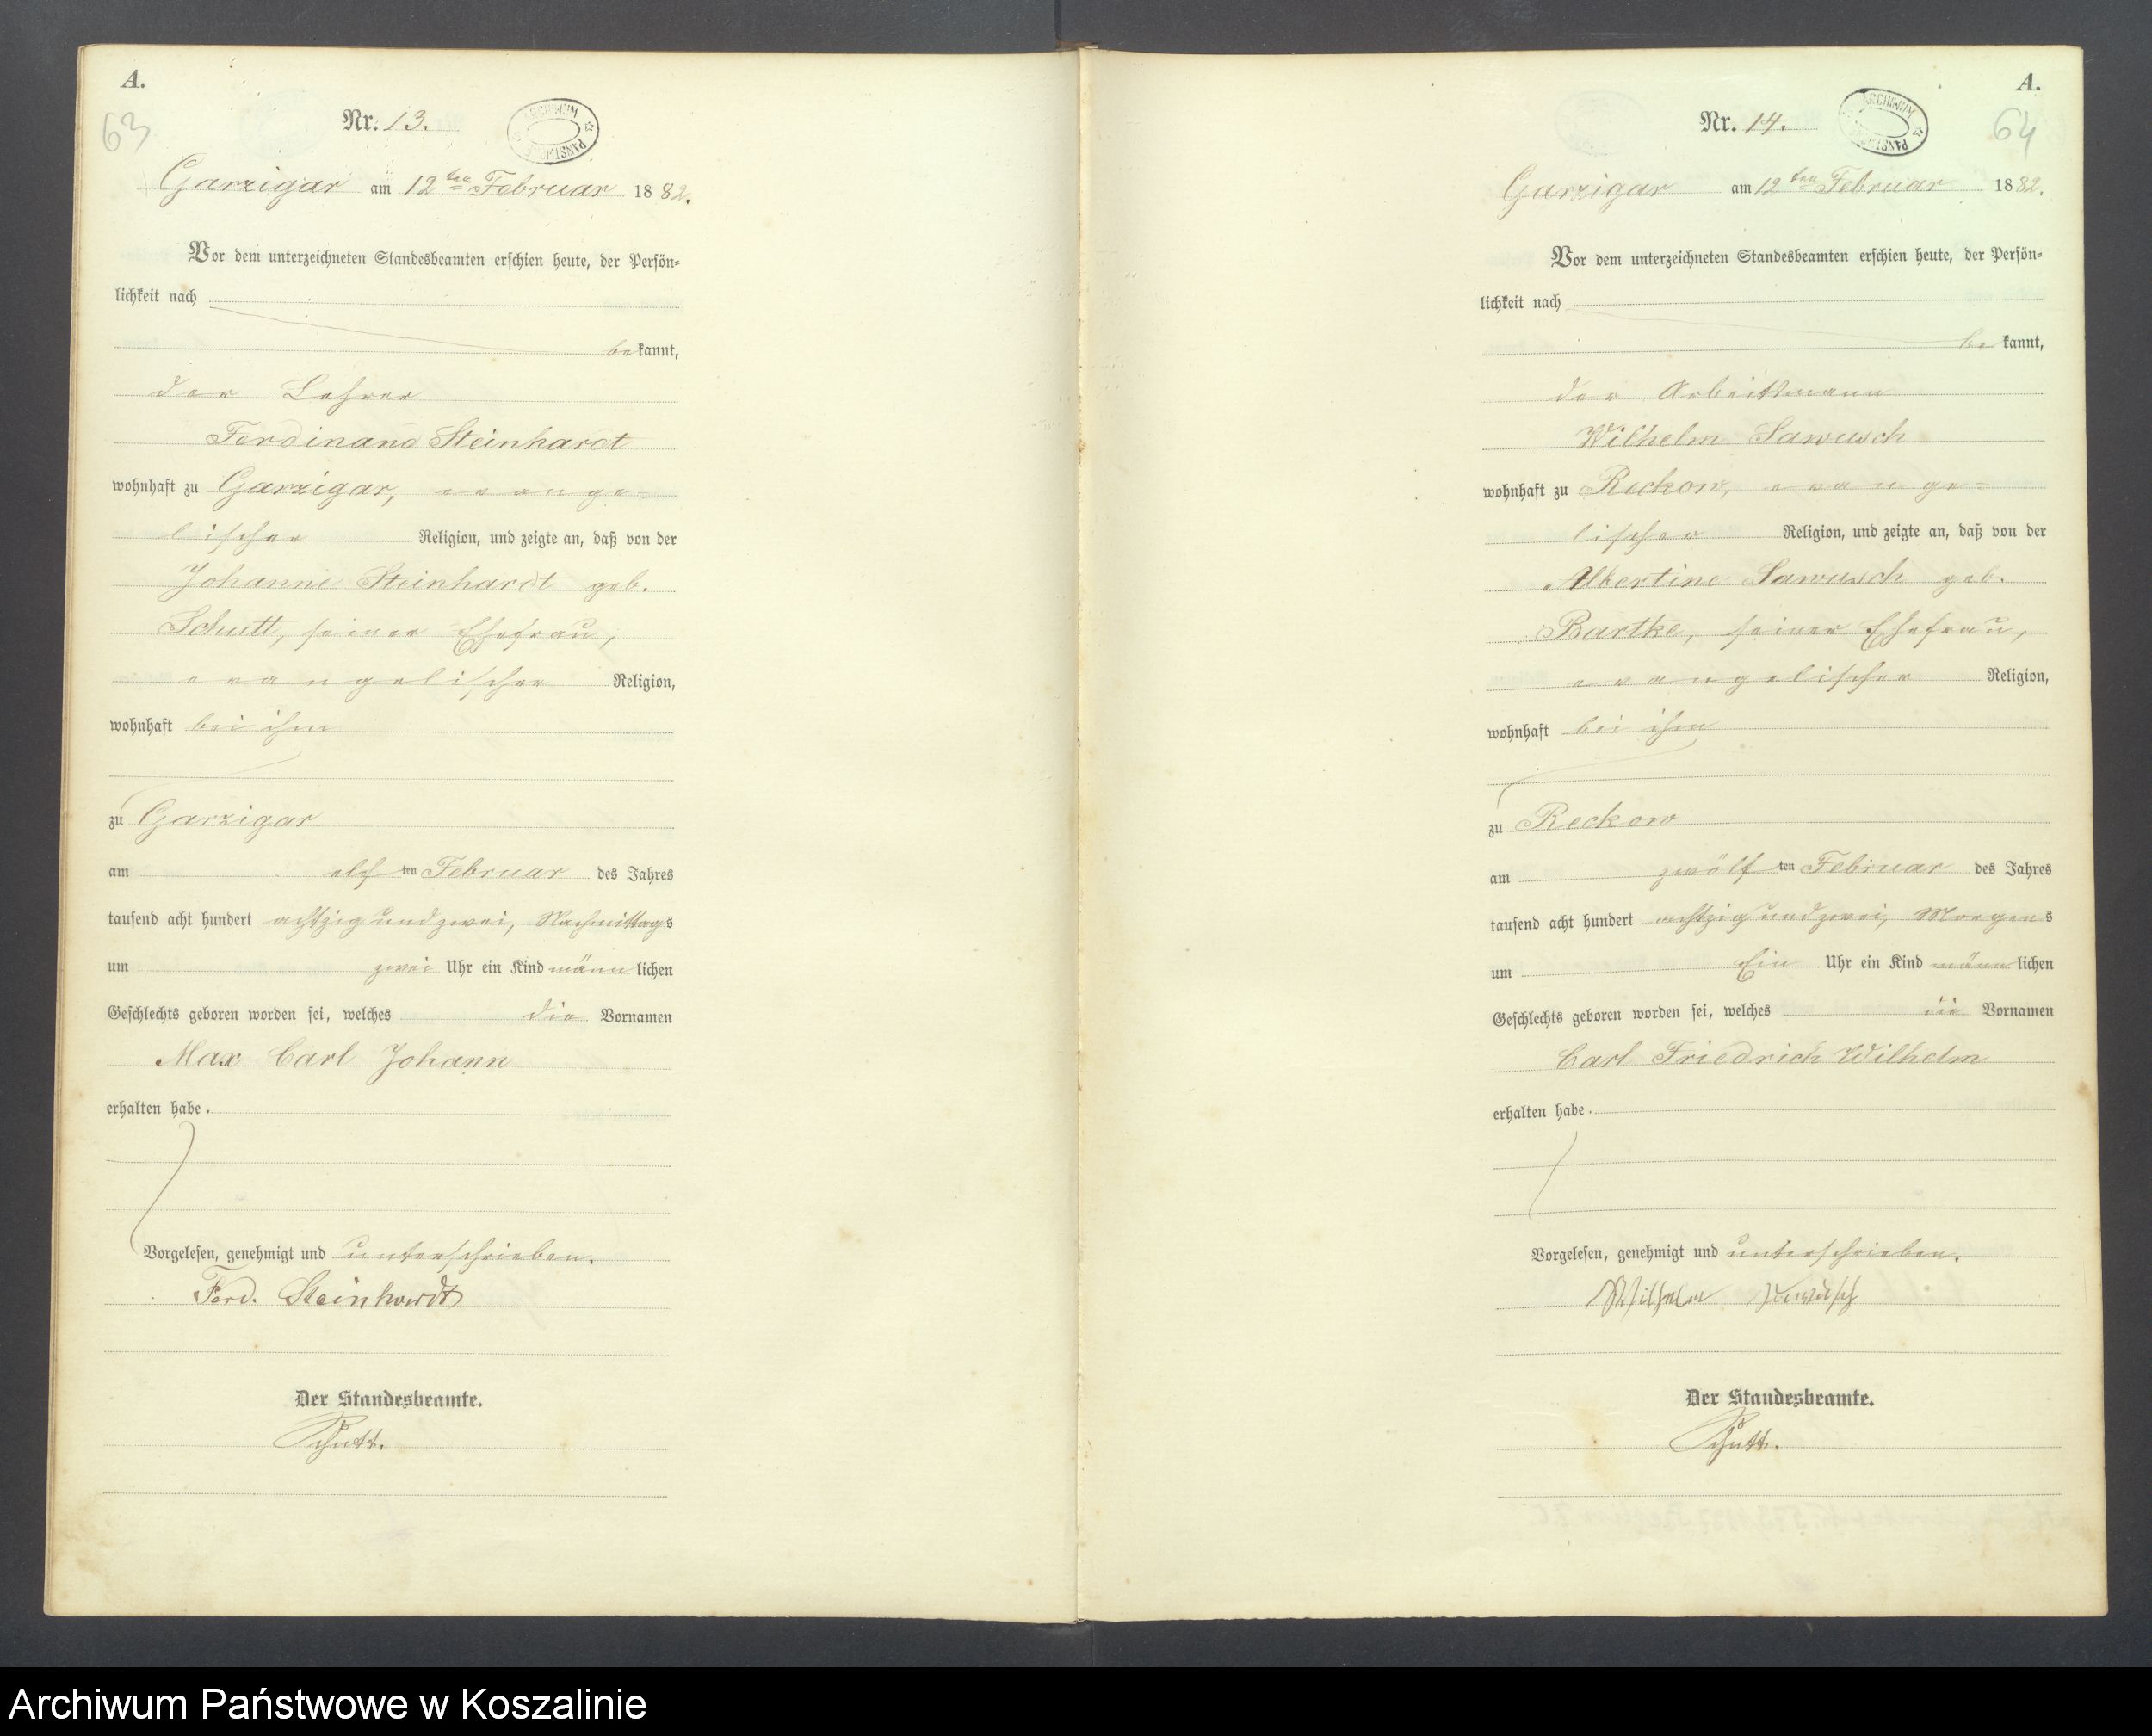 A.
63
Nr. 13.
ARCHIWUM
PAŃSTWOWE
Garzigar am 12ten Februar 1882.
Vor dem unterzeichneten Standesbeamten erschien heute, der Persön-
lichkeit nach
bekannt,
der Lehrer
Ferdinand Steinhardt
wohnhaft zu Garzigar, evange-
lischer Religion, und zeigte an, daß von der
Johanne Steinhardt geb.
Schutt, seiner Ehefrau,
evangelischer Religion,
wohnhaft bei ihm
zu Garzigar
am elf ten Februar des Jahres
tausend acht hundert achtzig und zwei, Nachmittags
um zwei Uhr ein Kind männlichen
Geschlechts geboren worden sei, welches die Vornamen
Max Carl Johann
erhalten habe.
Vorgelesen, genehmigt und unterschrieben.
Ferd. Steinhardt
Der Standesbeamte.
Schutt.
A.
64
Nr. 14.
ARCHIWUM
PAŃSTWOWE
Garzigar am 12ten Februar 1882.
Vor dem unterzeichneten Standesbeamten erschien heute, der Persön-
lichkeit nach
bekannt,
der Arbeitsmann
Wilhelm Sawusch
wohnhaft zu Reckow, evange-
lischer Religion, und zeigte an, daß von der
Albertine Sawusch geb.
Bartke, seiner Ehefrau,
evangelischer Religion,
wohnhaft bei ihm
zu Reckow
am zwölf ten Februar des Jahres
tausend acht hundert achtzig und zwei, Morgens
um Ein Uhr ein Kind männlichen
Geschlechts geboren worden sei, welches die Vornamen
Carl Friedrich Wilhelm
erhalten habe.
Vorgelesen, genehmigt und unterschrieben.
Wilhelm Sawusch
Der Standesbeamte.
Schutt.
Archiwum Państwowe w Koszalinie